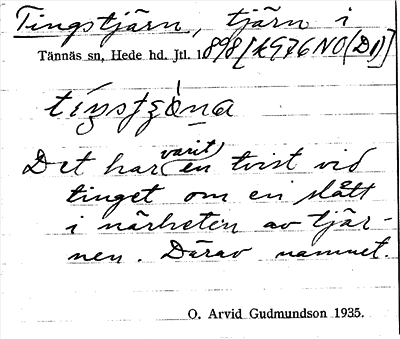 Tingstjärn, tjärn i
Tännäs sn, Hede hd. Jtl. 1898 [KG76NO(D1)]
Det har (varit) en tvist vid
tinget om en slått
i närheten av tjär-
nen. Därav namnet.
O. Arvid Gudmundson 1935.